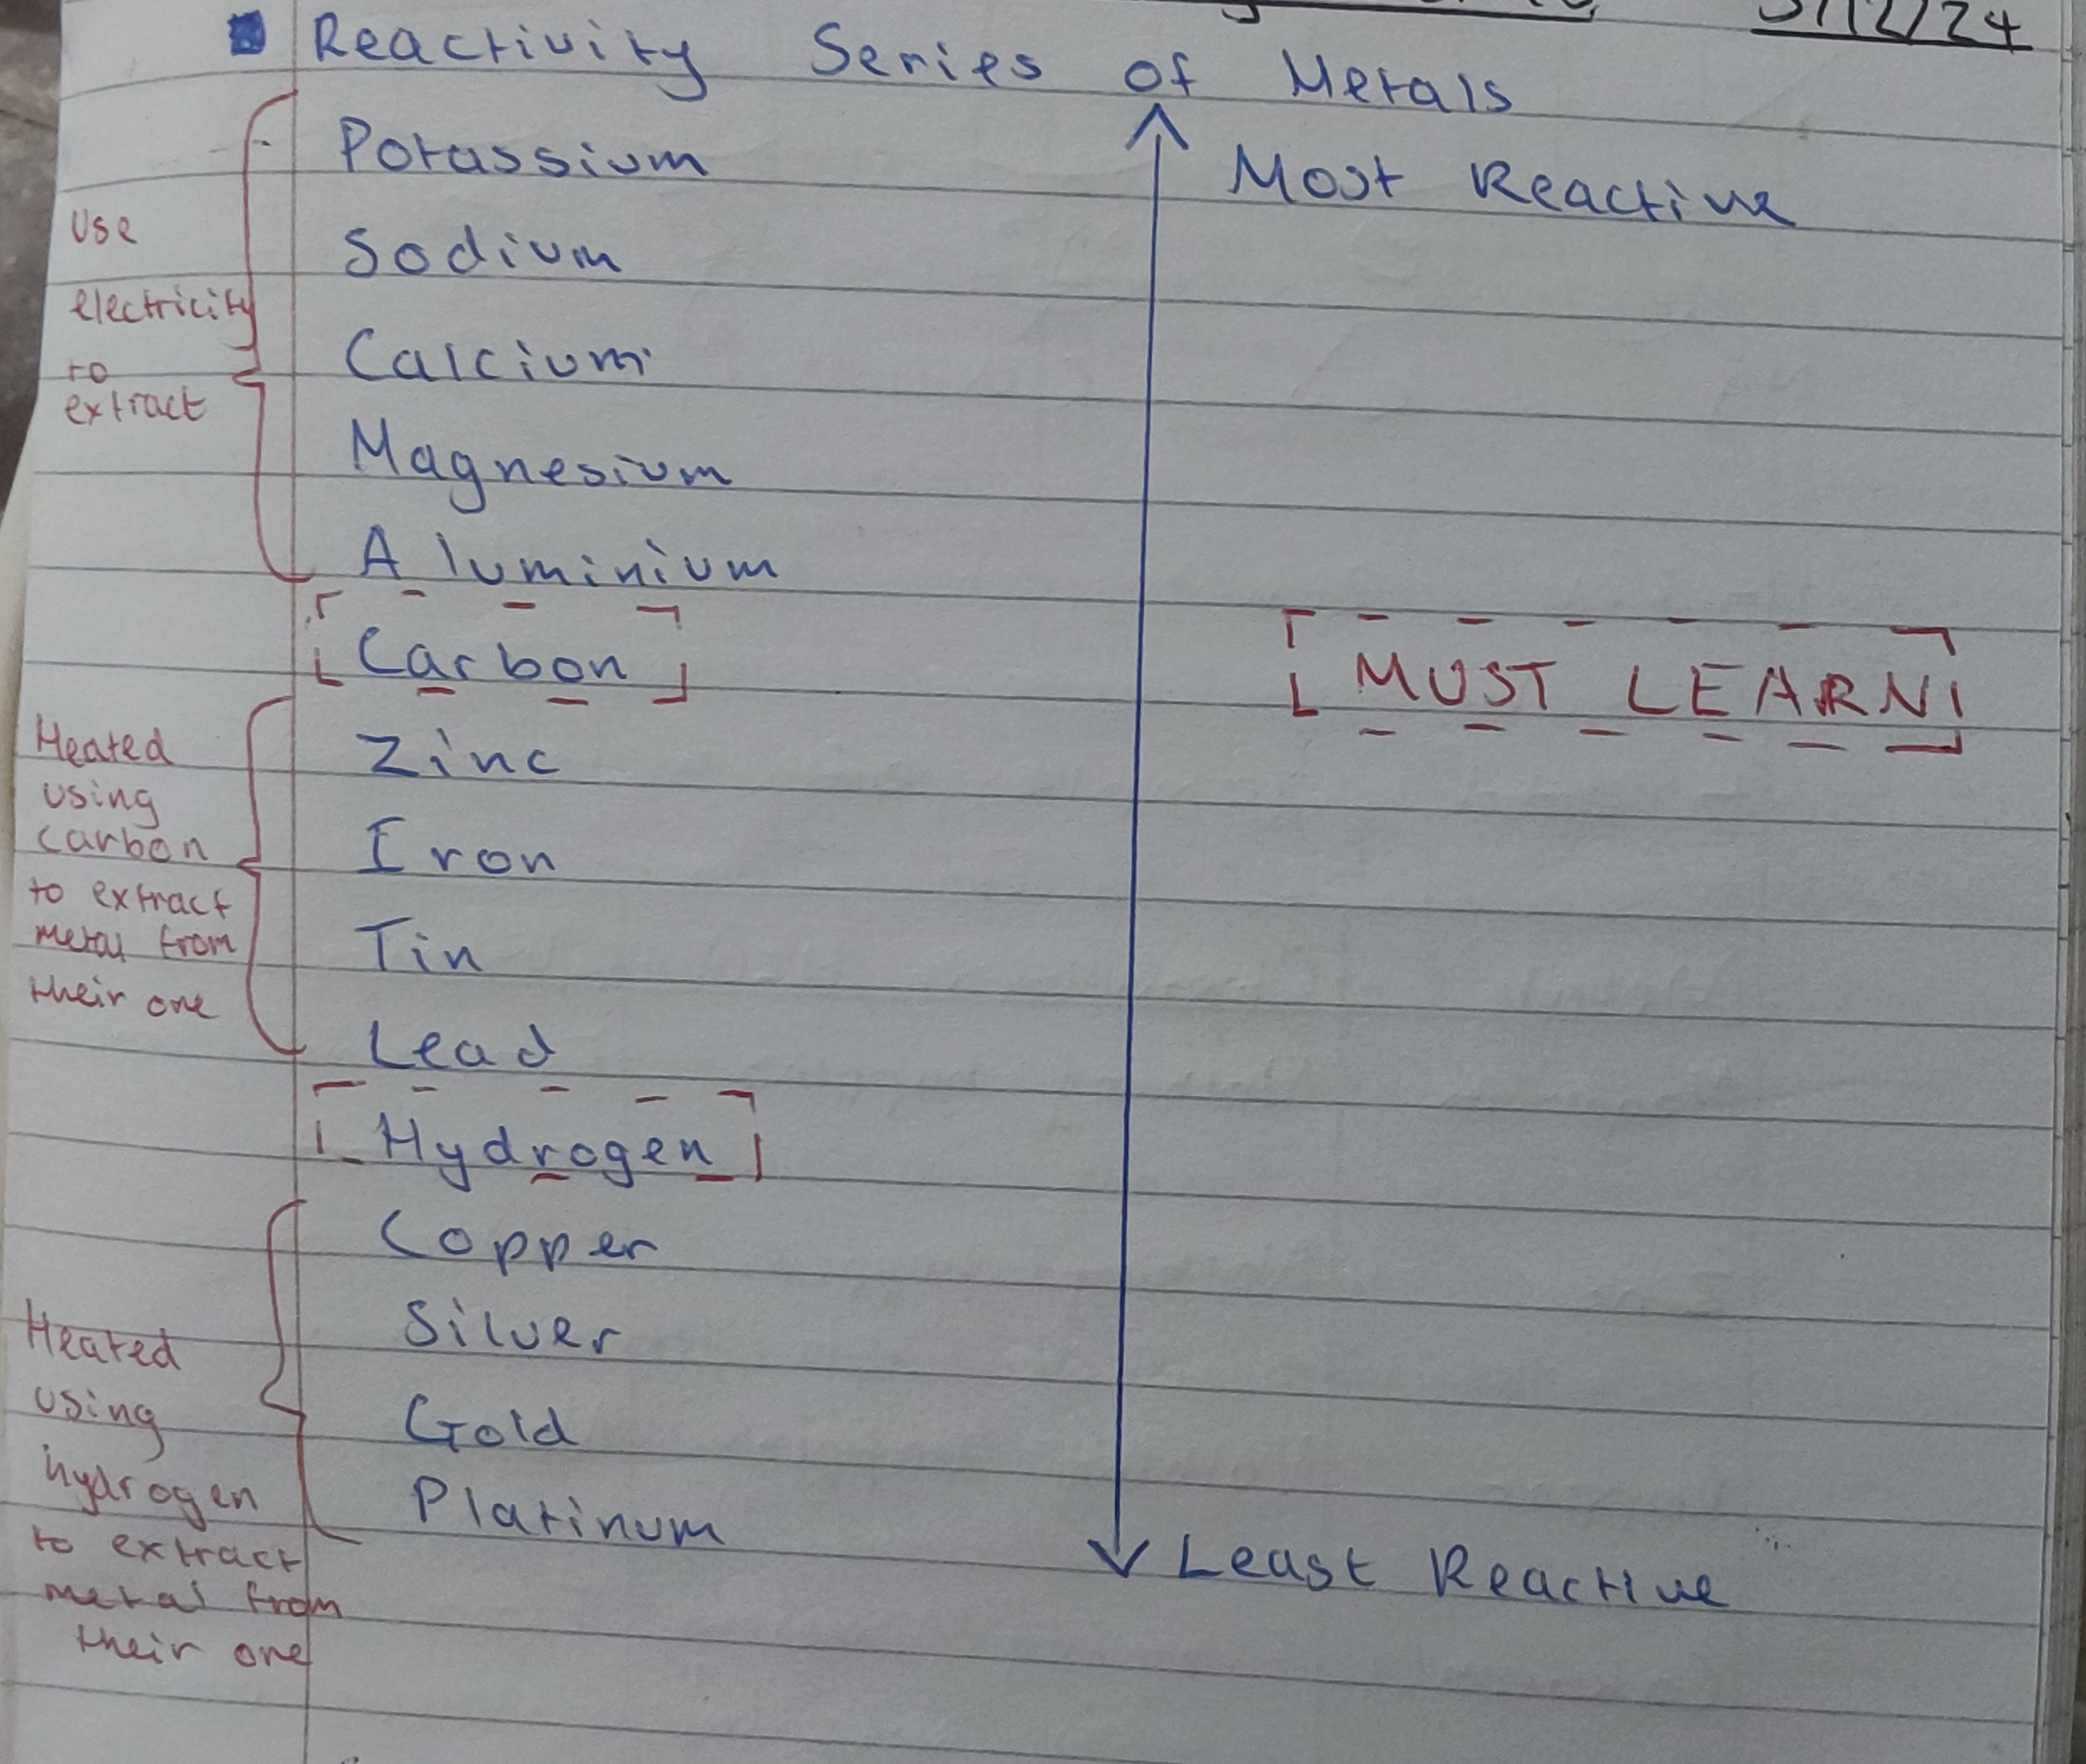 5/12/24
Reactivity Series of Metals
Potassium
Most Reactive
Sodium
Calcium
Magnesium
Aluminium
Use
electricity
to
extract
Carbon
MUST LEARN!
Zinc
Iron
Tin
Lead
Heated
using
carbon
to extract
metal from
their ore
Hydrogen
Copper
Silver
Gold
Platinum
Least Reactive
Heated
using
hydrogen
to extract
metal from
their ore